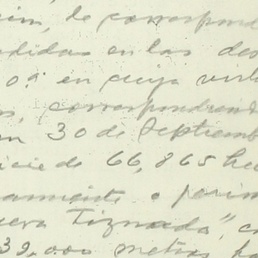 ción, le correspond
didas en las des
0ª en cuya virtu
s, correspondrend
en 30 de Septiemb
icie de 66,865 hec
amente o perim
uera Tiznada", c
39,000 metros